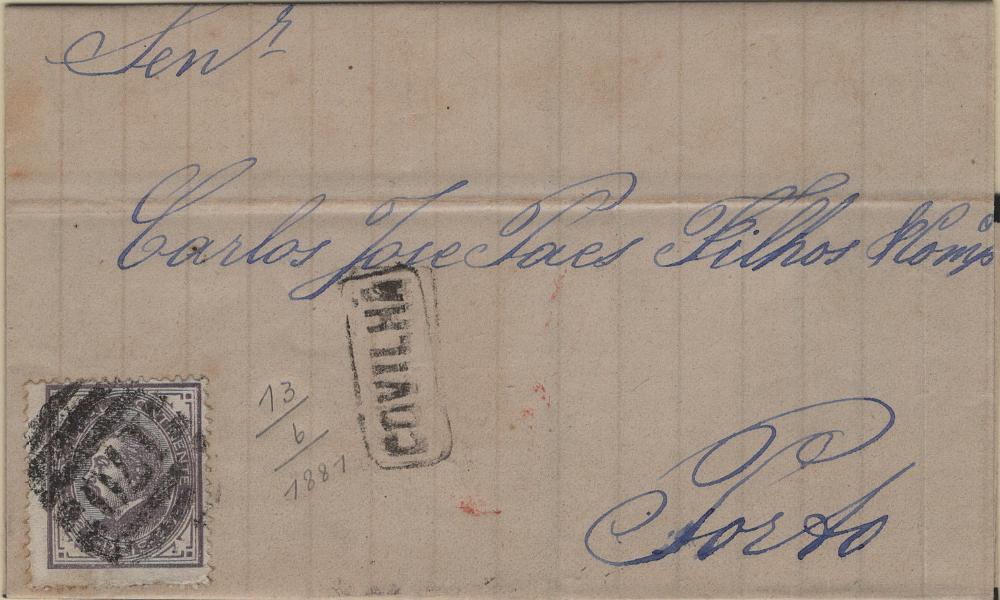 Senr
Carlos Jose Paes Filhos & Comp
Porto
COVILHÃ
13
6
1881